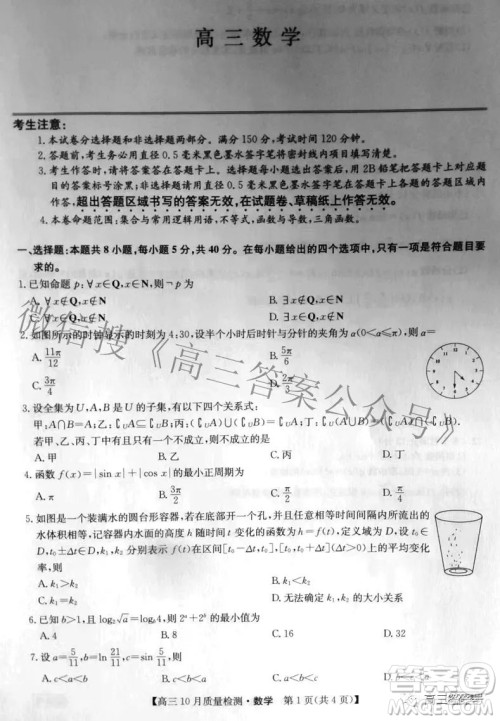 高三数学
考生注意：
1.本试卷分选择题和非选择题两部分。满分150分，考试时间120分钟。
2.答题前，考生务必用直径0.5毫米黑色墨水签字笔将密封线内项目填写清楚。
3.考生作答时，请将答案答在答题卡上。选择题每小题选出答案后，用2B铅笔把答题卡上对应题目的答案标号涂黑；非选择题请用直径0.5毫米黑色墨水签字笔在答题卡上各题的答题区域内作答，
超出答题区域书写的答案无效，在试题卷、草稿纸上作答无效。
4.本卷命题范围：集合与常用逻辑用语，不等式，函数，导数，三角函数，解三角形。
一、选择题：本题共8小题，每小题5分，共40分。在每小题给出的四个选项中，只有一项是符合题目要求的。
1.已知命题 p:∀x∉Q,x∉N，则¬p为
A.∀x∉Q,x∈N B.∃x∉Q,x∈N
C.∀x∈Q,x∈N D.∃x∈Q,x∈N
2.如图所示的时钟显示的时刻为4:30，设半个小时后时针与分针的夹角为α(0<α≤π)，则α=
A.11π/12 B.5π/6
C.3π/4 D.2π/3
3.设全集为U，A，B是U的子集，有以下四个关系式：
甲：A∩B=A；乙：A∪B=B；丙：(∁UA)∪B=U；丁：(∁UA)∩(∁UB)=∁UA.
若甲、乙、丙、丁中有且只有一个不成立，则该式是
A.甲 B.乙 C.丙 D.丁
4.函数 f(x)=|sin x|+|cos x|的最小正周期为
A.π B.3π/2 C.2π D.π/2
5.如图是一个装满水的圆台形容器，若在底部开一个孔，并且任意相等时间间隔内所流出的水体积相等，记容器内水面的高度h随时间t变化的函数为h=f(t)，定义域为D，设t₀∈D，t₀±Δt∈D，k₁，k₂分别表示f(t)在区间[t₀-Δt,t₀]，[t₀,t₀+Δt](Δt>0)上的平均变化率，则
A.k₁>k₂ B.k₁<k₂
C.k₁=k₂ D.无法确定k₁，k₂的大小关系
6.已知b>1，且log₂√a=log_b4，则2ᵃ+2ᵇ的最小值为
A.4 B.8 C.16 D.32
7.设a=5/11，b=ln 21/11，c=sin 5/11，则
A.c<a<b B.c<b<a C.a<b<c D.b<c<a
【高三10月质量检测·数学 第1页(共4页)】
微信搜《高三答案公众号》